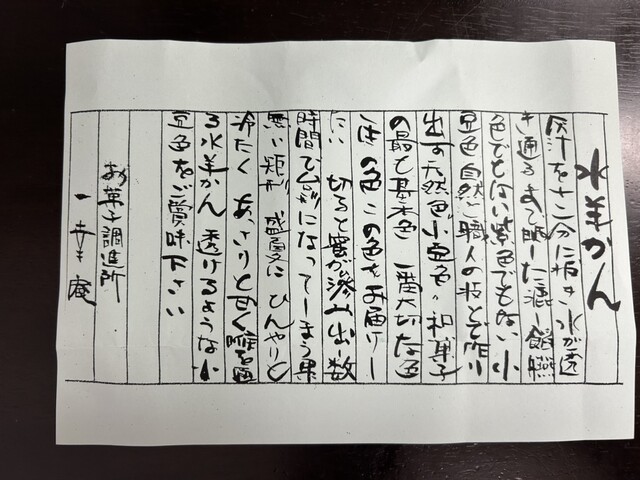 水羊かん
灰汁を十二分に抜き 水が透
き通るまで晒した漉し餡 燕脂
色でもない 紫色でもない 小
豆色 自然と職人の技とで作り
出す天然色“小豆色” 和菓子
の最も基本色 一番大切な色
この色をお届けし
たい 切ると蜜が滲み出し 数
時間で台形になってしまう果
無い矩形 盛夏に ひんやりと
冷たく あっさりと甘く 喉を
る水羊かん 透けるような小
豆色をご賞味下さい
お菓子調進所
一幸庵